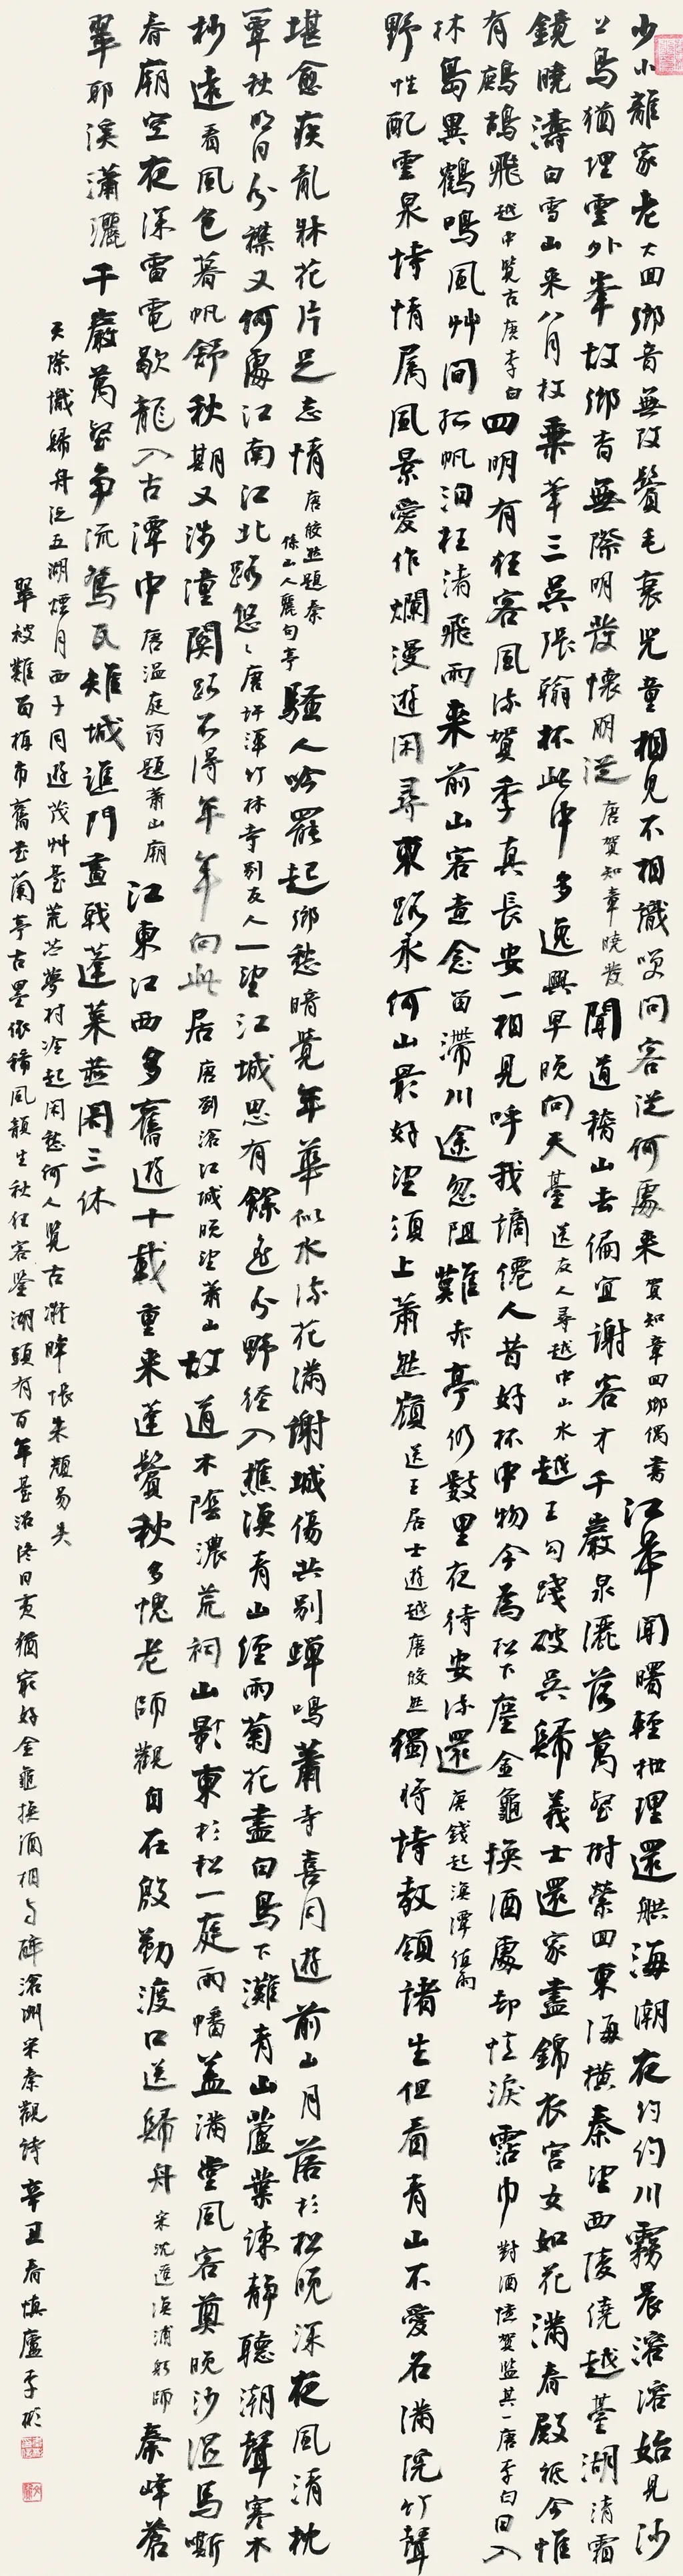 少小離家老大回鄉音無改鬢毛衰兒童相見不相識笑問客從何處來賀知章回鄉偶書江皋聞曙鐘輕枻理還舼海潮夜約約川霧晨溶溶始見沙
上鳥猶埋雲外峯故鄉杳無際明發懷朋從唐賀知章曉發聞道稽山去偏宜謝客才千巖泉灑落萬壑樹縈回東海橫秦望西陵繞越臺湖清霜
鏡曉濤白雪山來八月枚乘筆三吳張翰杯此中多逸興早晚向天臺送友人尋越中山水越王勾踐破吳歸義士還家盡錦衣宮女如花滿春殿祗今惟
有鷓鴣飛越中覽古唐李白四明有狂客風流賀季真長安一相見呼我謫僊人昔好杯中物今為松下塵金龜換酒處卻憶淚霑巾對酒憶賀監其一唐李白日入
林島異鶴鳴風艸間孤帆泊枉渚飛雨來前山客意念留滯川途忽阻難赤亭仍數里夜待安流還唐錢起漁潭值雨
野性配雲泉詩情屬風景愛作爛漫遊閑尋東路永何山最好望須上蕭然嶺送王居士遊越唐皎然獨將詩教領諸生但看青山不愛名滿院竹聲
堪愈疾亂牀花片足忘情唐皎然題秦係山人麗句亭騷人吟罷起鄉愁暗覺年華似水流花滿謝城傷共別蟬鳴蕭寺喜同遊前山月落杉松晚深夜風清枕
簟秋明日分襟又何處江南江北路悠悠唐許渾竹林寺別友人一望江城思有餘遙分野徑入樵漁青山經雨菊花盡白鳥下灘青山蘆葉疎靜聽潮聲寒木
杪遠看風色暮帆舒秋期又涉潼關路不得年年向此居唐劉滄江城晚望蕭山故道木陰濃荒祠山影東杉松一庭雨幡蓋滿堂風客奠晚沙濕馬嘶
春廟空夜深雷電歇龍入古潭中唐溫庭筠題蕭山廟江東江西多舊遊十載重來蓬鬢秋多愧老師觀自在殷勤渡口送歸舟宋沈遘漁浦舩師秦峰蒼
翠耶溪瀟灑千巖萬壑爭流鴛瓦雉城譙門畫戟蓬萊燕閣三休
天際識歸舟泛五湖煙月西子同遊茂艸臺荒苎夢村冷起閑愁何人覽古凝眸悵朱顏易失
翠被難留梅市舊書蘭亭古墨依稀風韻生秋狂客鑒湖頭有百年臺沼終日夷猶最好金龜換酒相與醉滄洲宋秦觀詩辛丑春慎廬李彬